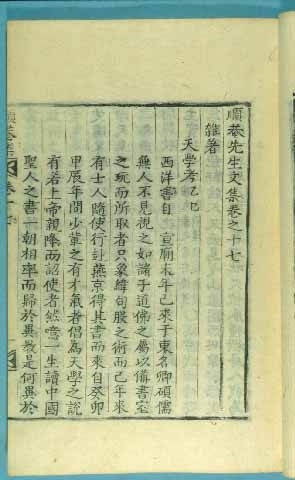 順菴先生文集卷之十七
雜著
天學考乙巳
西洋書自 宣廟末年已來于東名卿碩儒
無人不見視之如諸子道佛之屬以備書室
之玩而所取者只象緯句股之術而已年來
有士人隨使行赴燕京得其書而來自癸卯
甲辰年間少輩之有才氣者倡為天學之說
有若上帝親降而詔使者然噫一生讀中國
聖人之書一朝相率而歸於異教是何異於